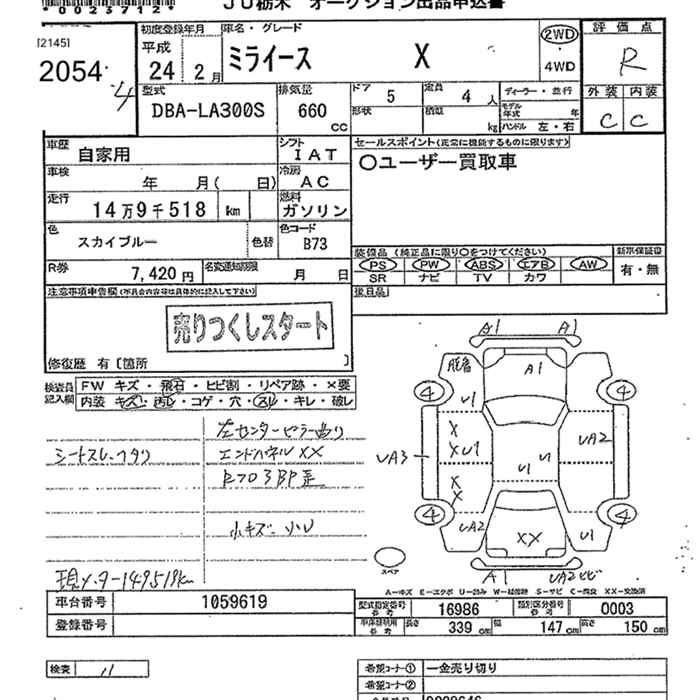 *00237127*
JU栃木 オークション出品申込書
[2145]
2054
4
初度登録年月 車名・グレード
平成 24 2月 ミライース X
2WD
4WD
評価点
R
外装 内装
C C
型式 DBA-LA300S
排気量 660 cc
ドア 5 定員 4 人
形状 積載 kg
ディーラー・並行
モデル年式 年
ハンドル 左・右
車歴 自家用
シフト IAT
セールスポイント(正常に機能するものに限ります)
〇ユーザー買取車
車検 年 月( 日)
冷房 AC
走行 14万9千518 km
燃料 ガソリン
色 スカイブルー 色替
色コード B73
装備品(純正品に限り〇をつけてください) 新車保証書
PS PW ABS エアB AW 有・無
SR ナビ TV カワ
R券 7,420円 名変通知期限 月 日
後日品
注意事項申告欄(不具合内容は具体的に記入して下さい)
売りつくしスタート
修復歴 有〔箇所 〕
検査員記入欄
FW キズ・飛石・ヒビ割・リペア跡・×要
内装 キズ・汚レ・コゲ・穴・スレ・キレ・破レ
左センターピラー曲り
シートスレ・ヘタリ エンドパネルXX
小キズ・小U
現メーター149518km
A1 A1
脱着 A1
4 4
U1
X
XU1 UA2
UA3 U1 U
X
X
4 4
UA2 XX U1
スペア
A1 UA2ヒビ
A-キズ E-エクボ U-凹み W-補修跡 S-サビ C-腐食 XX-交換済
車台番号 1059619
登録番号
型式指定番号 参考 16986 類別区分番号 参考 0003
車検証明用 参考 長さ 339 cm 幅 147 cm 高さ 150 cm
検査
希望コーナー① 一金売り切り
希望コーナー②